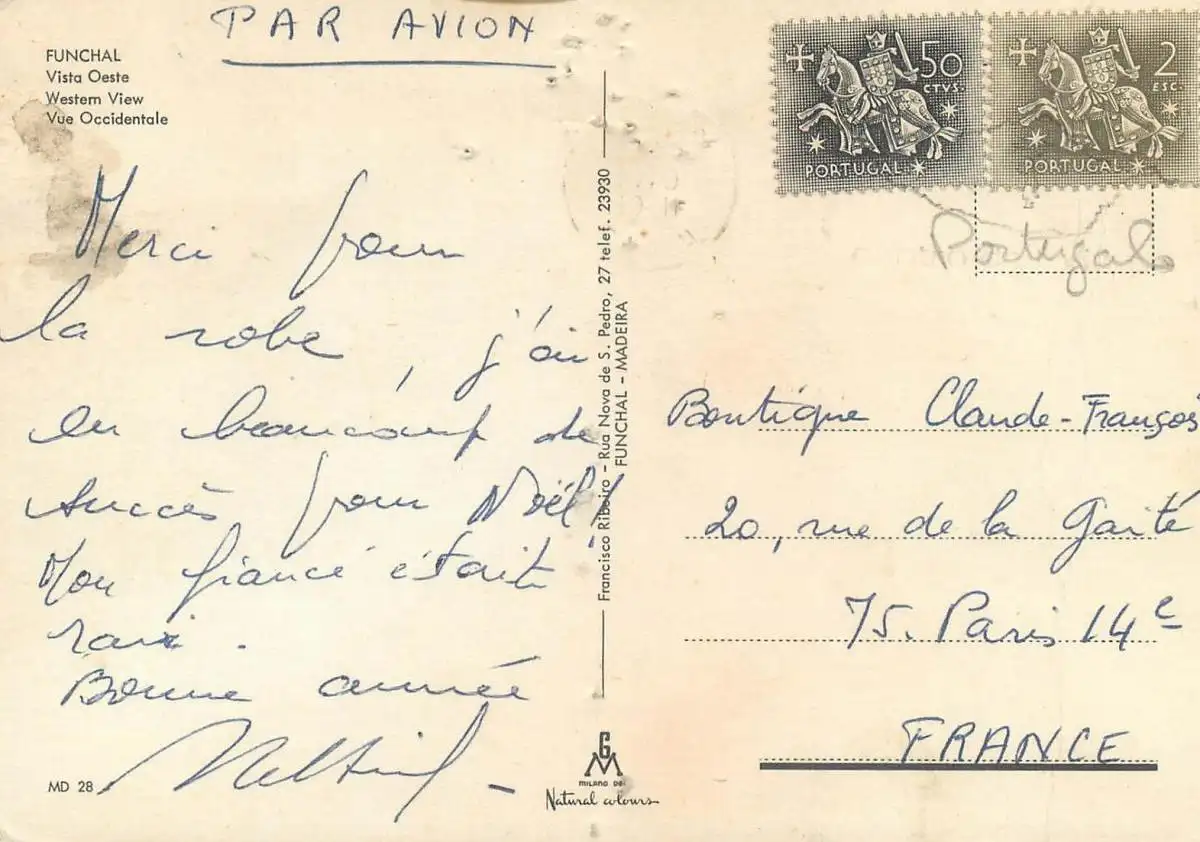 PAR AVION
FUNCHAL
Vista Oeste
Western View
Vue Occidentale
Merci pour
la robe, j'ai
eu beaucoup de
succès pour Noël!
Mon fiancé était
ravi.
Bonne année
MD 28
Francisco Ribeiro - Rua Nova de S. Pedro, 27 telef. 23930
FUNCHAL - MADEIRA
GM
MILANO
Natural colours
50
CTVS.
PORTUGAL
2
ESC.
PORTUGAL
Portugal
Boutique Claude-François
20, rue de la Gaité
75. Paris 14e
FRANCE